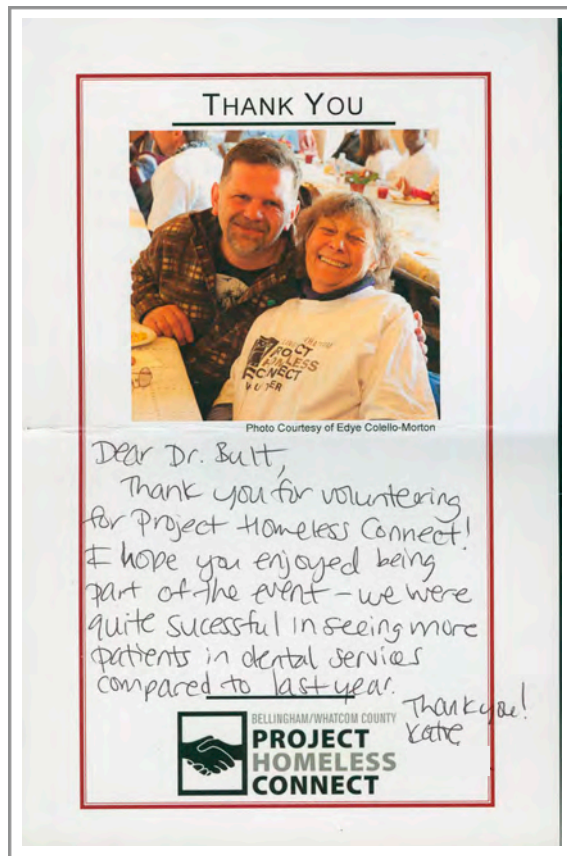 THANK YOU
PROJECT
HOMELESS
CONNECT
Photo Courtesy of Edye Colello-Morton
Dear Dr. Bult,
Thank you for volunteering
for Project Homeless Connect!
I hope you enjoyed being
part of the event – we were
quite sucessful in seeing more
patients in dental services
compared to last year.
Thank you!
Katie
BELLINGHAM/WHATCOM COUNTY
PROJECT
HOMELESS
CONNECT